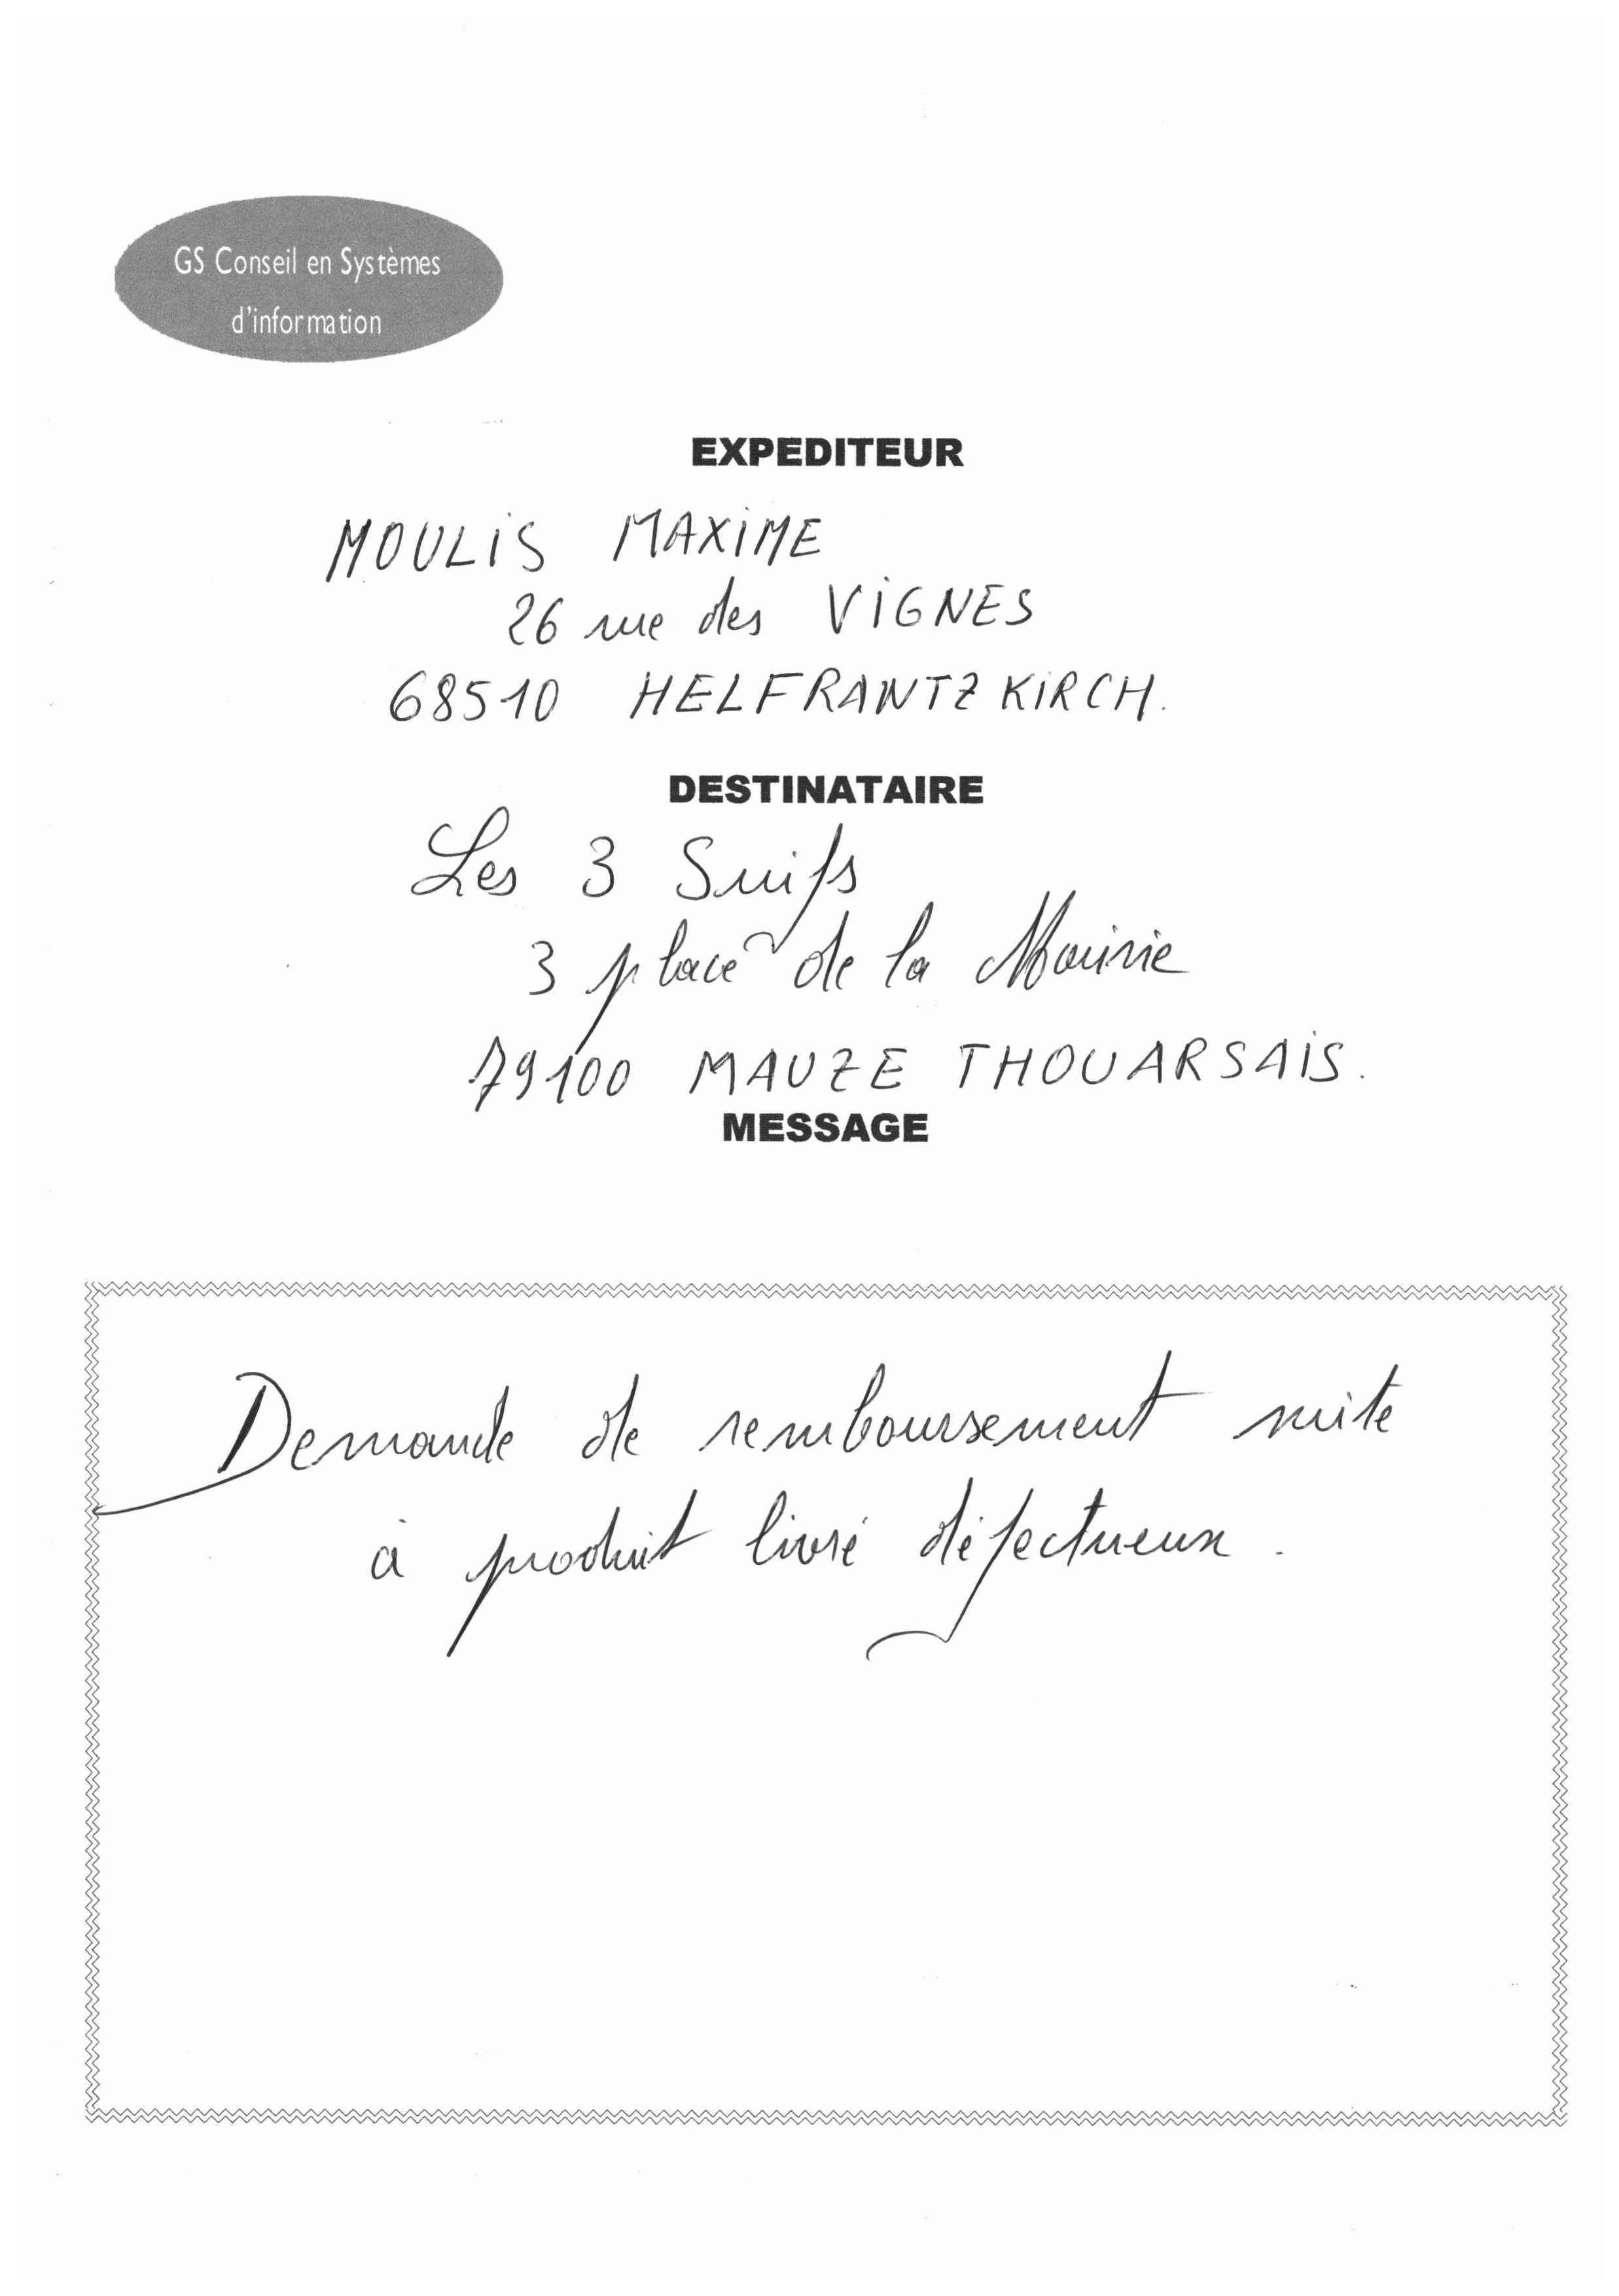 GS Conseil en Systèmes
d'information
EXPEDITEUR
MOULIS MAXIME
26 rue des VIGNES
68510 HELFRANTZKIRCH.
DESTINATAIRE
Les 3 Suifs
3 place de la Mairie
79100 MAUZE THOUARSAIS.
MESSAGE
Demande de remboursement suite
à produit livré défectueux.